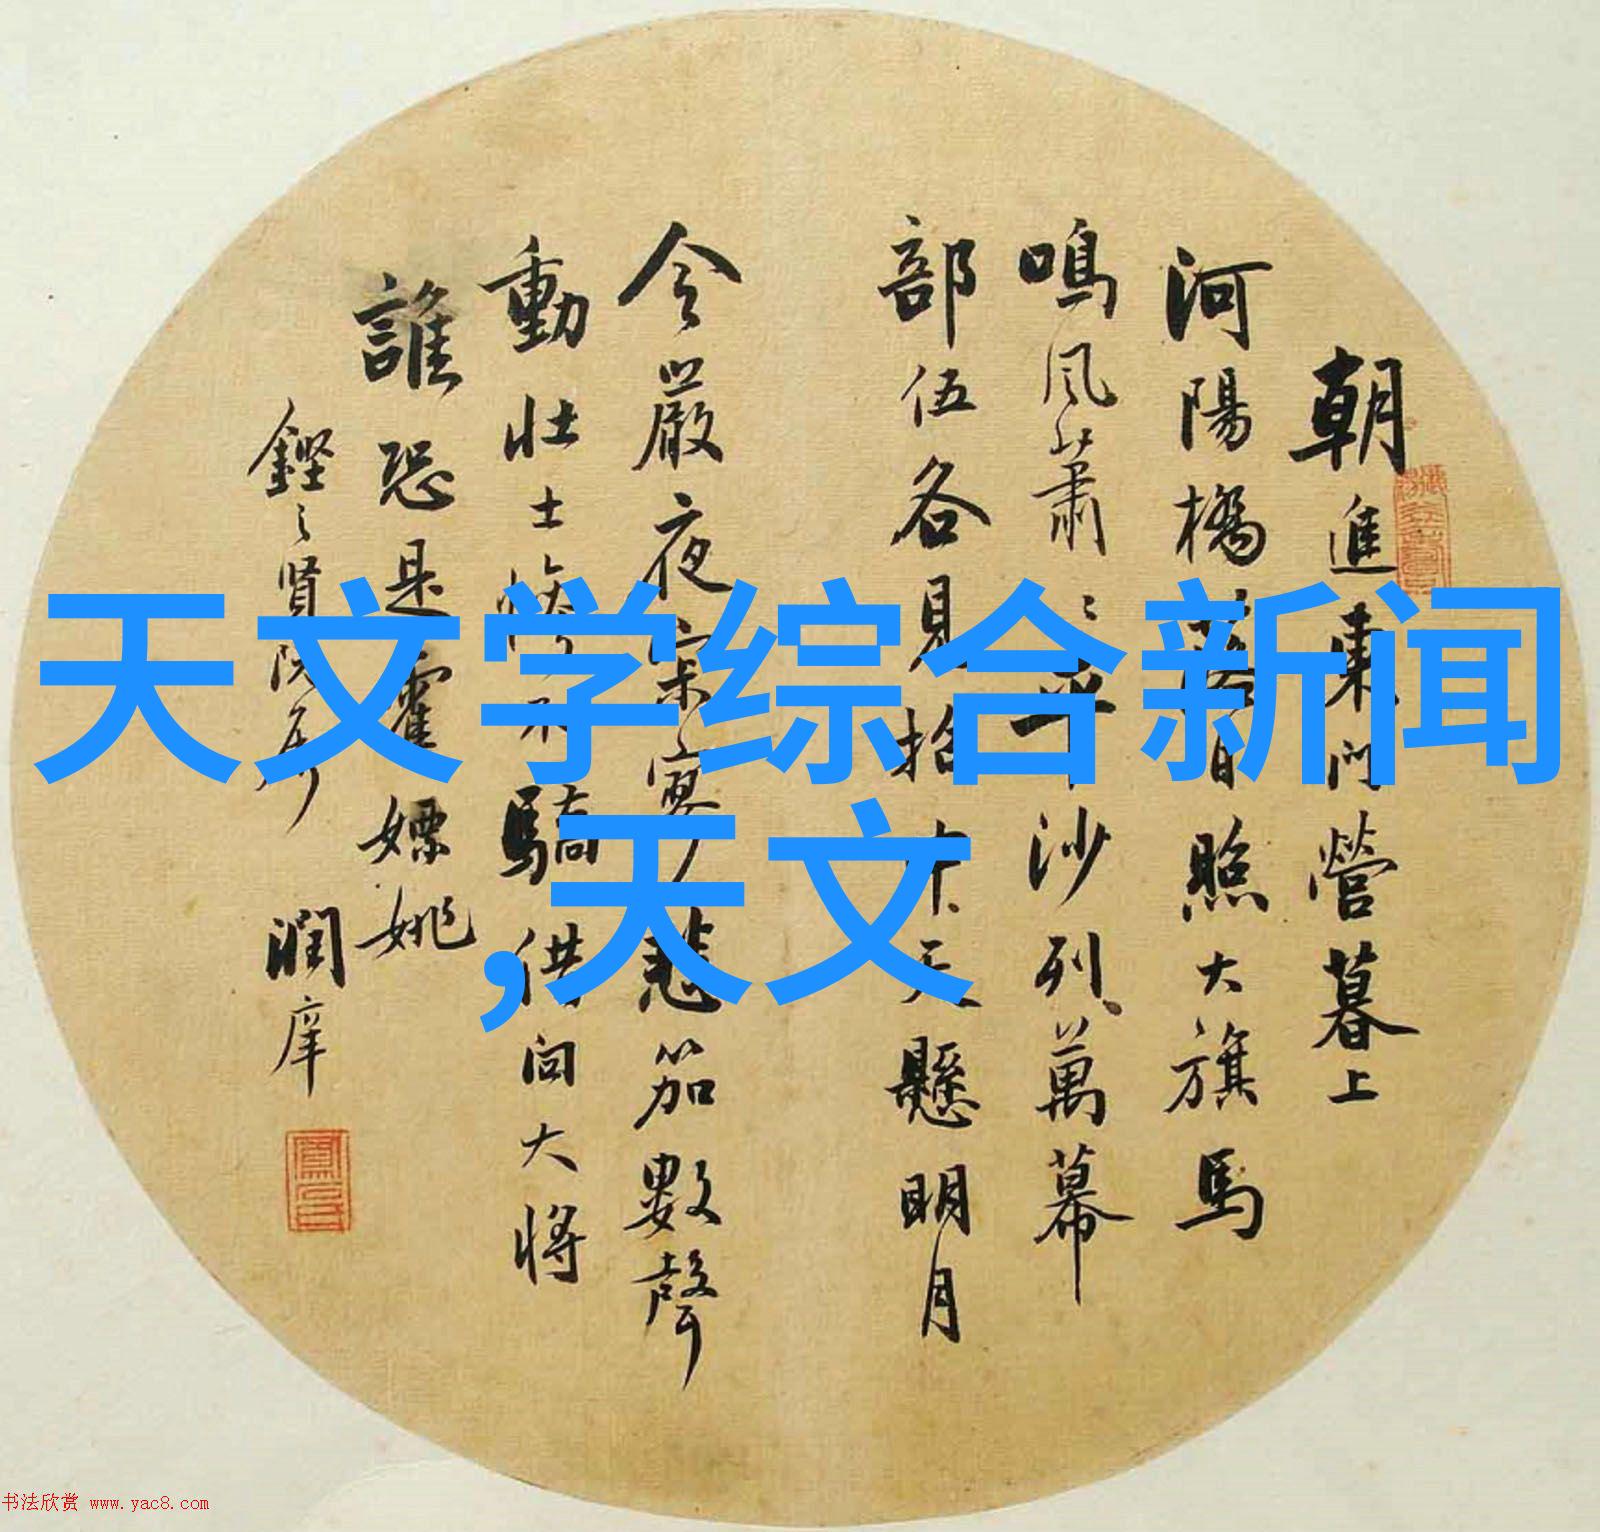 天文学综合新闻
,天文
朝進東門營暮上
河陽橋落日照大旗馬
鳴風蕭〻平沙列萬幕
部伍各見招中天懸明月
令嚴夜寂寥悲笳數聲
動壯士慘不驕借問大將
誰恐是霍嫖姚
賢阮屬
潤庠
书法欣赏 www.yac8.com